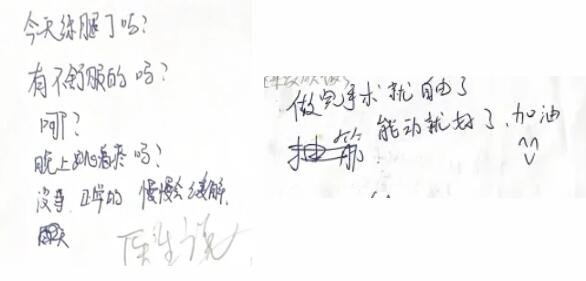 今天练腿了吗？
有不舒服的吗？
啊？
晚上 看 吗？
没事 正常的 慢慢会缓解
医生说
做完手术就自由了
抽筋 能动就好了，加油
^^